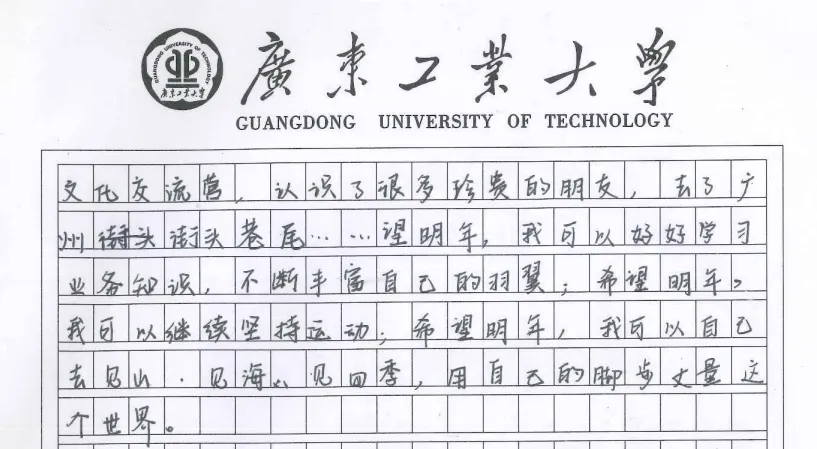 廣東工業大學
GUANGDONG UNIVERSITY OF TECHNOLOGY
GUANGDONG UNIVERSITY OF TECHNOLOGY
广东工业大学
文化交流营，认识了很多珍贵的朋友，去了广
州街头街头巷尾……望明年，我可以好好学习
业务知识，不断丰富自己的羽翼；希望明年。
我可以继续坚持运动；希望明年，我可以自己
去见山．见海、见四季，用自己的脚步丈量这
个世界。